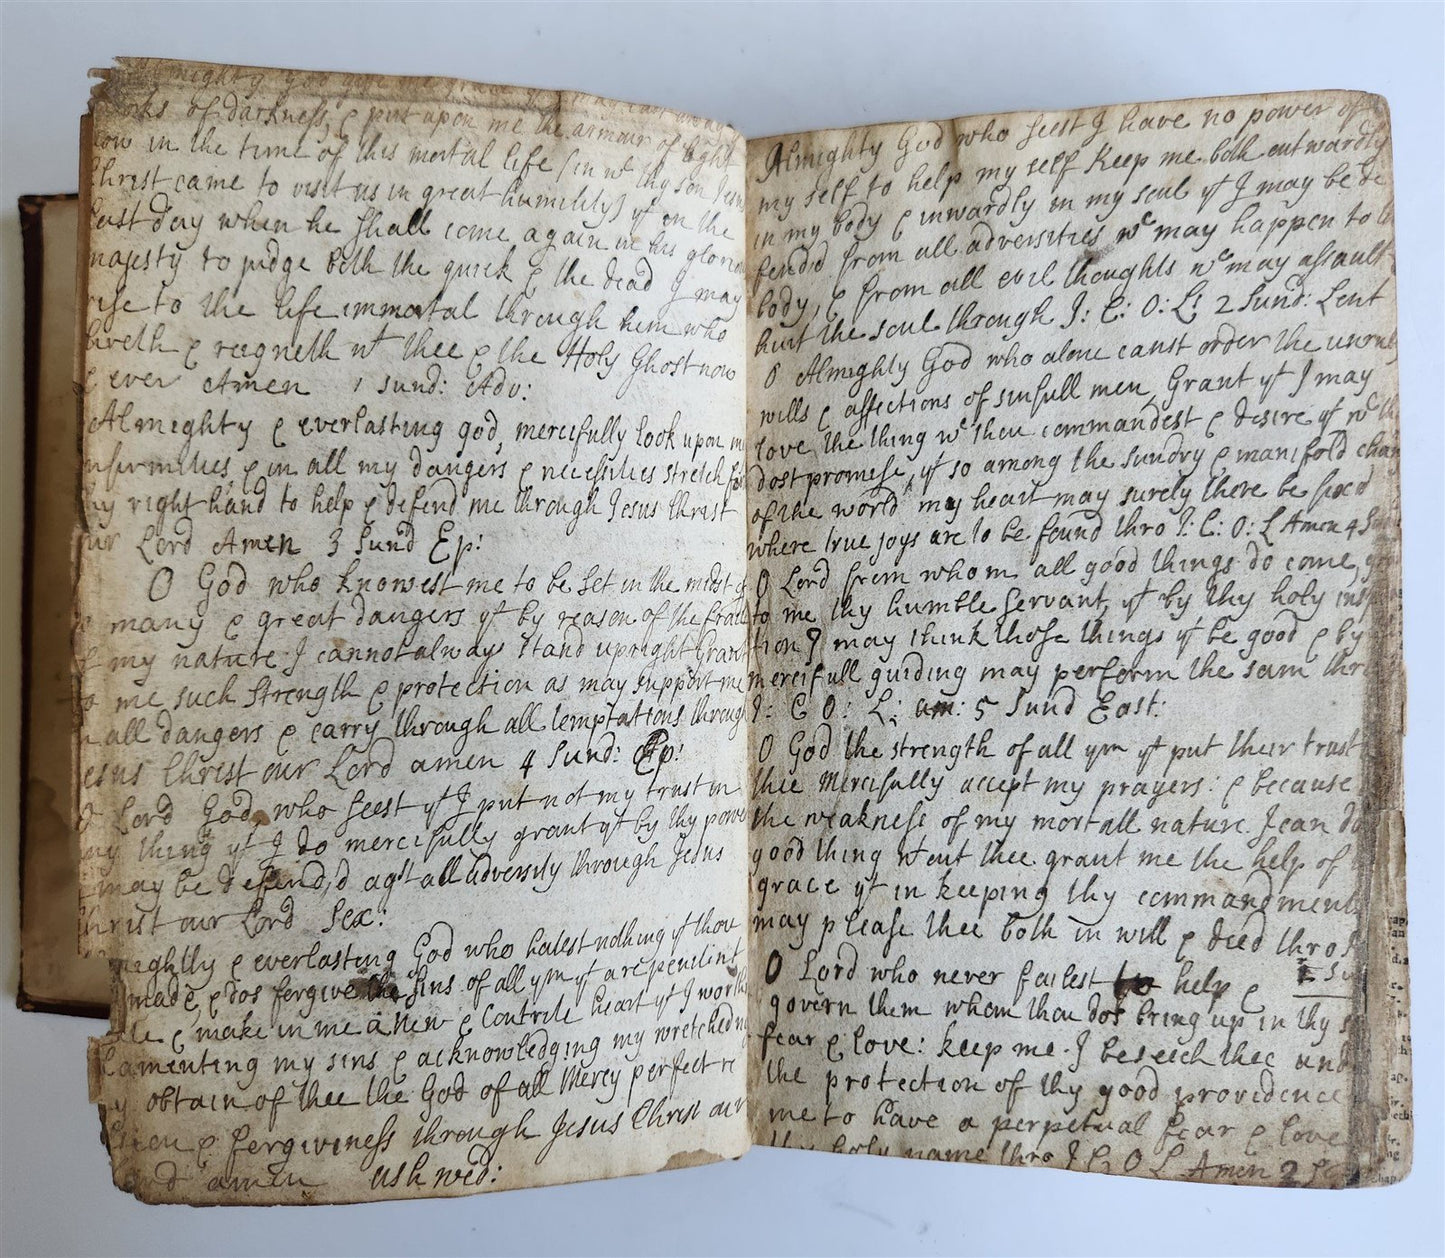 mighty God give me grace yt I may cast away
works of darkness, & put upon me the armour of light
now in the time of this mortal life (in wc thy son Jesus
Christ came to visit us in great humility) yt on the
last day when he shall come again in his glorious
majesty to judge both the quick & the dead I may
rise to the life immortal through him who
liveth & reegneth wt thee & the Holy Ghost now
& ever Amen 1 Sund: Adv:
Almighty & everlasting god, mercifully look upon my
infirmities, & in all my dangers & necessities stretch for
thy right hand to help & defend me through Jesus Christ
our Lord Amen 3 Sund Ep:
O God who knowest me to be set in the midst of
so many & great dangers yt by reason of the frail
of my nature I cannot always stand upright Grant
to me such strength & protection as may support me
in all dangers & carry through all temptations through
Jesus Christ our Lord amen 4 Sund: Ep:
O Lord God, who seest yt I put not my trust in
any thing yt I do mercifully grant yt by thy power
I may be defend,d agst all adversity through Jesus
Christ our Lord Sex:
mightly & everlasting God who hatest nothing yt thou
made, & dos forgive the sins of all ym yt are penitent
& make in me a new & Contrite heart yt I worth
lamenting my sins & acknowledging my wretchedn
obtain of thee the God of all Mercy perfect re
& forgiveness through Jesus Christ our
Lord amen Ash wed:
Almighty God who seest I have no power of
my self to help my self keep me both outwardly
in my body & inwardly in my soul yt I may be de
fendid from all adversities wc may happen to the
body, & from all evil thoughts wc may assault &
hurt the soul through J: C: O: L: 2 Sund: Lent
O Almighty God who alone canst order the unruly
wills & affections of sinfull men, Grant yt I may
love the thing wc thou commandest & desire yt wc th
dost promise, yt so among the sundry & manifold chan
of the world my heart may surely there be fixed
where true joys are to be found thro J: C: O: L Amen 4 Su
O Lord from whom all good things do come, gr
to me thy humble servant, yt by thy holy insp
tion I may think those things yt be good & by
mercifull guiding may perform the sam thro
J: C O: L: am: 5 Sund East:
O God the strength of all ym yt put their trust
thee Mercifully accept my prayers: & because
the weakness of my mortall nature I can do
good thing wtout thee grant me the help of
grace yt in keeping thy commandments
may please thee both in will & deed thro J
O Lord who never failest to help & 1 Su
govern them whom thou dos bring up in thy s
fear & love: keep me I beseech thee und
the protection of thy good providence
me to have a perpetual fear & love
thy holy name thro J C O L Amen 2 S